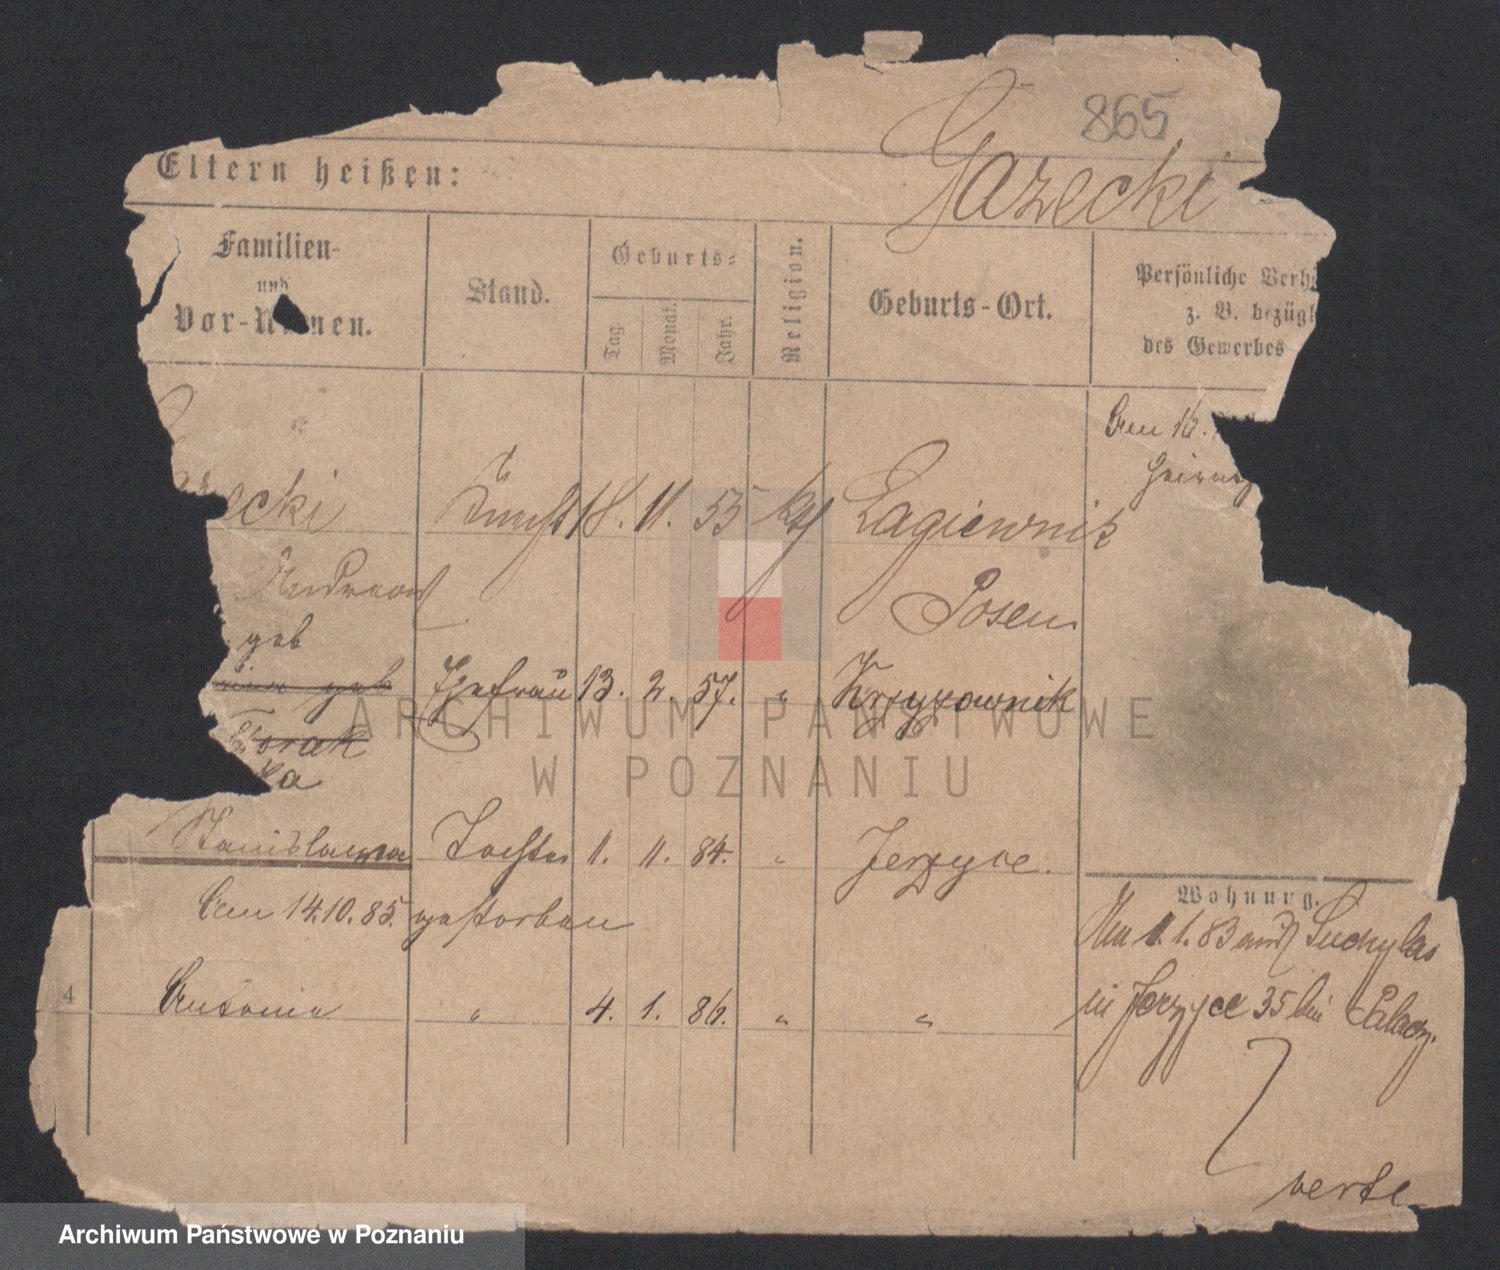 865
Eltern heißen:
Gazecki
Familien-
und
Vor-Namen.
Stand.
Geburts-
Tag.
Monat.
Jahr.
Religion.
Geburts-Ort.
Persönliche Verh
z. B. bezügl
des Gewerbes
Am 16.
ecki
Knecht 18. 11. 55 kth Lagiewnik
Andreas
Posen
geb
geb Ehefrau 13. 2. 57. " Krzyzownik
ka
Stanislawa Tochter 1. 11. 84. " Jerzyce.
Am 14.10.85. gestorben
4
Antonie " 4. 1. 86. " "
Wohnung.
1.1.83 aus Suchylas
in Jerzyce 35 bei Palacz.
verte
ARCHIWUM PAŃSTWOWE
W POZNANIU
Archiwum Państwowe w Poznaniu